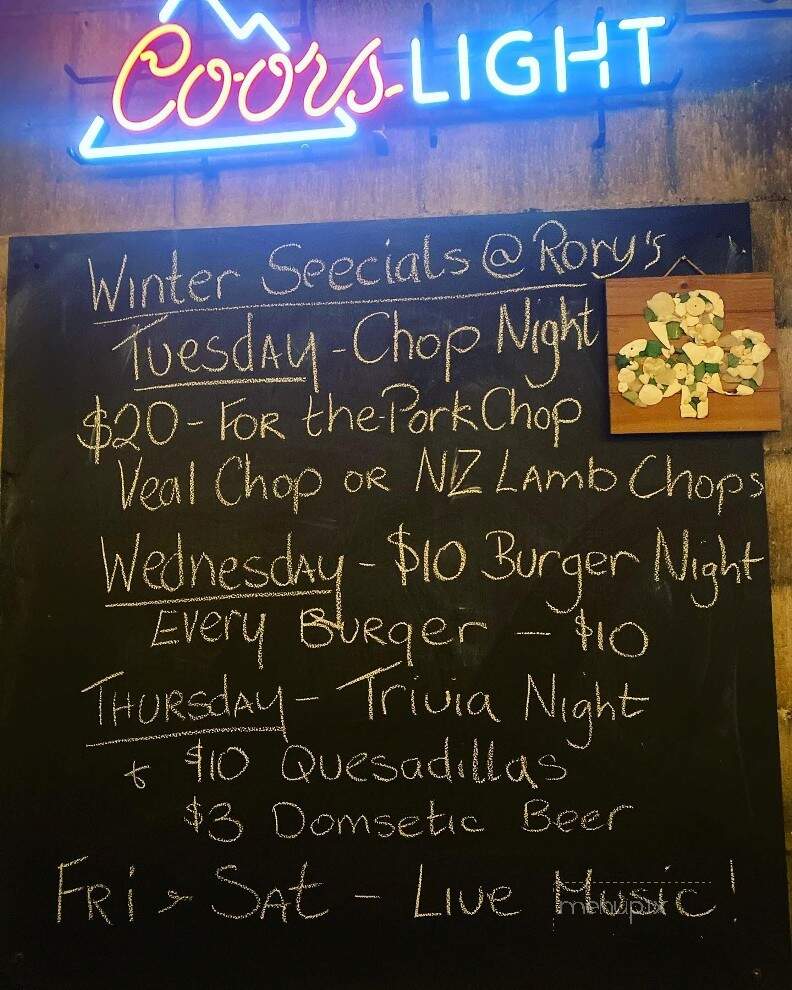 Coors LIGHT
Winter Specials @ Rory's
Tuesday - Chop Night
$20 - For the Pork Chop
Veal Chop or NZ Lamb Chops
Wednesday - $10 Burger Night
Every Burger - $10
Thursday - Trivia Night
+ $10 Quesadillas
$3 Domsetic Beer
Fri > Sat - Live Music!
menupix